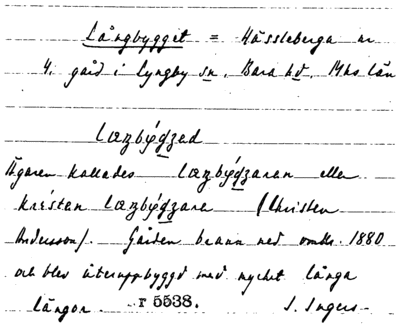 Långbygget = Hässleberga nr
4. gård i Lyngby sn. Bara hd. Mhs län
læzbýgzed
Ägaren kallades læzbýgzaran eller
kréstan læzbýgzara (Christen
Andersson). Gården brann ned omkr. 1880
och blev återuppbyggd med mycket långa
längor. r 5538. I. Ingers